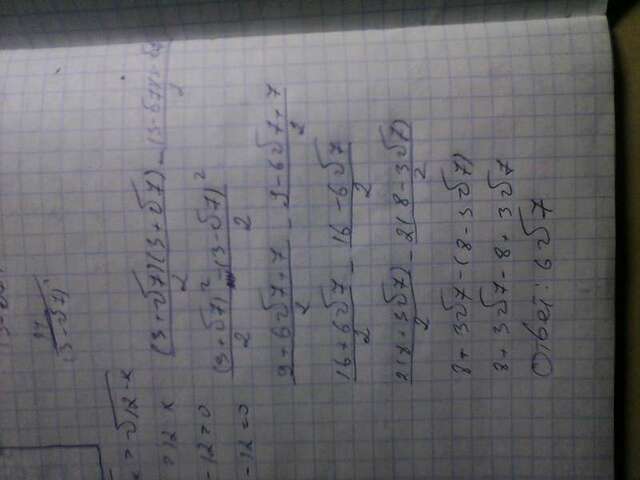 (3-√7)²
x = √12-x
= 12-x
-12=0
-12=0
(3+√7)(3+√7)/2 - (3-√7)
(3+√7)²/2 - (3-√7)²/2
9+6√7+7/2 - 9-6√7+7/2
16+6√7/2 - 16-6√7/2
2(8+3√7)/2 - 2(8-3√7)/2
8+3√7-(8-3√7)
8+3√7-8+3√7
Ответ: 6√7